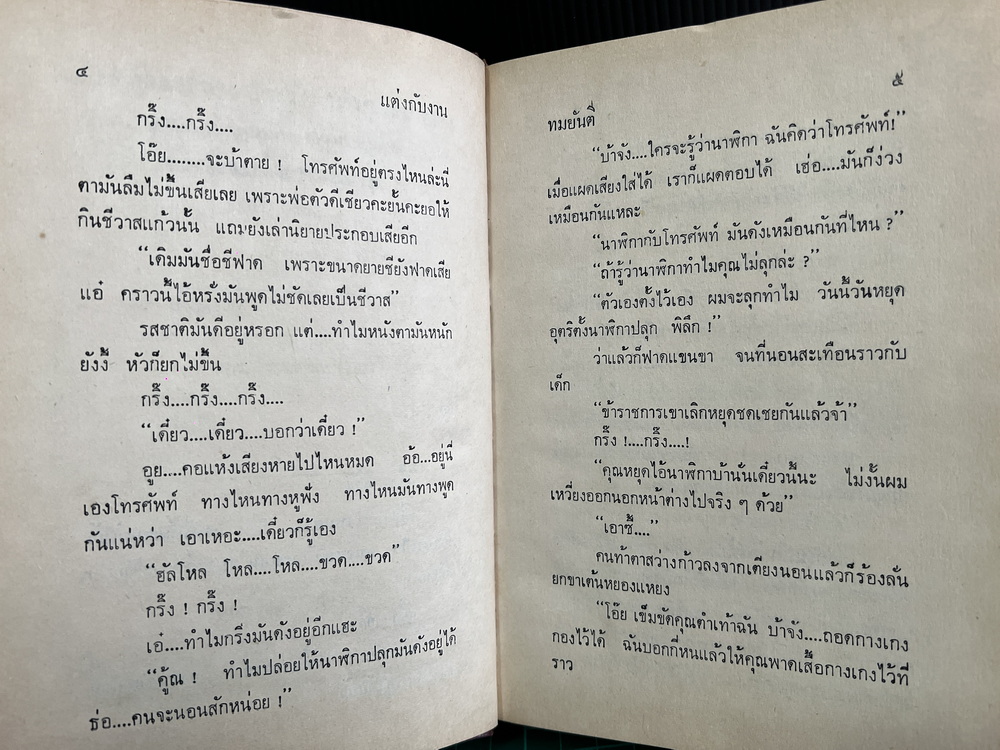 ๔
แต่งกับงาน
กริ๊ง....กริ๊ง....
โอ๊ย........จะบ้าตาย ! โทรศัพท์อยู่ตรงไหนล่ะนี่
ตามันลืมไม่ขึ้นเสียเลย เพราะพ่อตัวดีเชียวคะยั้นคะยอให้
กินชีวาสแก้วนั้น แถมยังเล่านิยายประกอบเสียอีก
“เดิมมันชื่อชีฟาด เพราะขนาดยายชียังฟาดเสีย
แอ๋ คราวนี้ไอ้หรั่งมันพูดไม่ชัดเลยเป็นชีวาส”
รสชาติมันดีอยู่หรอก แต่....ทำไมหนังตามันหนัก
ยังงี้ หัวก็ยกไม่ขึ้น
กริ๊ง....กริ๊ง....กริ๊ง....
“เดี๋ยว....เดี๋ยว....บอกว่าเดี๋ยว !”
อูย....คอแห้งเสียงหายไปไหนหมด อ้อ...อยู่นี่
เองโทรศัพท์ ทางไหนทางหูฟัง ทางไหนมันทางพูด
กันแน่หว่า เอาเหอะ....เดี๋ยวก็รู้เอง
“ฮัลโหล โหล....โหล....ขวด....ขวด”
กริ๊ง ! กริ๊ง !
เอ๋....ทำไมกริ่งมันดังอยู่อีกแฮะ
“คู้ณ ! ทำไมปล่อยให้นาฬิกาปลุกมันดังอยู่ได้
ธ่อ....คนจะนอนสักหน่อย !”
๕
ทมยันตี
“บ้าจัง....ใครจะรู้ว่านาฬิกา ฉันคิดว่าโทรศัพท์!”
เมื่อแผดเสียงใส่ได้ เราก็แผดตอบได้ เฮ่อ....มันก็ง่วง
เหมือนกันแหละ
“นาฬิกากับโทรศัพท์ มันดังเหมือนกันที่ไหน ?”
“ถ้ารู้ว่านาฬิกาทำไมคุณไม่ลุกล่ะ ?”
“ตัวเองตั้งไว้เอง ผมจะลุกทำไม วันนี้วันหยุด
อุตริตั้งนาฬิกาปลุก พิลึก !”
ว่าแล้วก็ฟาดแขนขา จนที่นอนสะเทือนราวกับ
เด็ก
“ข้าราชการเขาเลิกหยุดชดเชยกันแล้วจ้า”
กริ๊ง !....กริ๊ง....!
“คุณหยุดไอ้นาฬิกาบ้านั่นเดี๋ยวนี้นะ ไม่งั้นผม
เหวี่ยงออกนอกหน้าต่างไปจริง ๆ ด้วย”
“เอาซี้....”
คนท้าตาสว่างก้าวลงจากเตียงนอนแล้วก็ร้องลั่น
ยกขาเต้นหยองแหยง
“โอ๊ย เข็มขัดคุณตำเท้าฉัน บ้าจัง....ถอดกางเกง
กองไว้ได้ ฉันบอกกี่หนแล้วให้คุณพาดเสื้อกางเกงไว้ที่
ราว